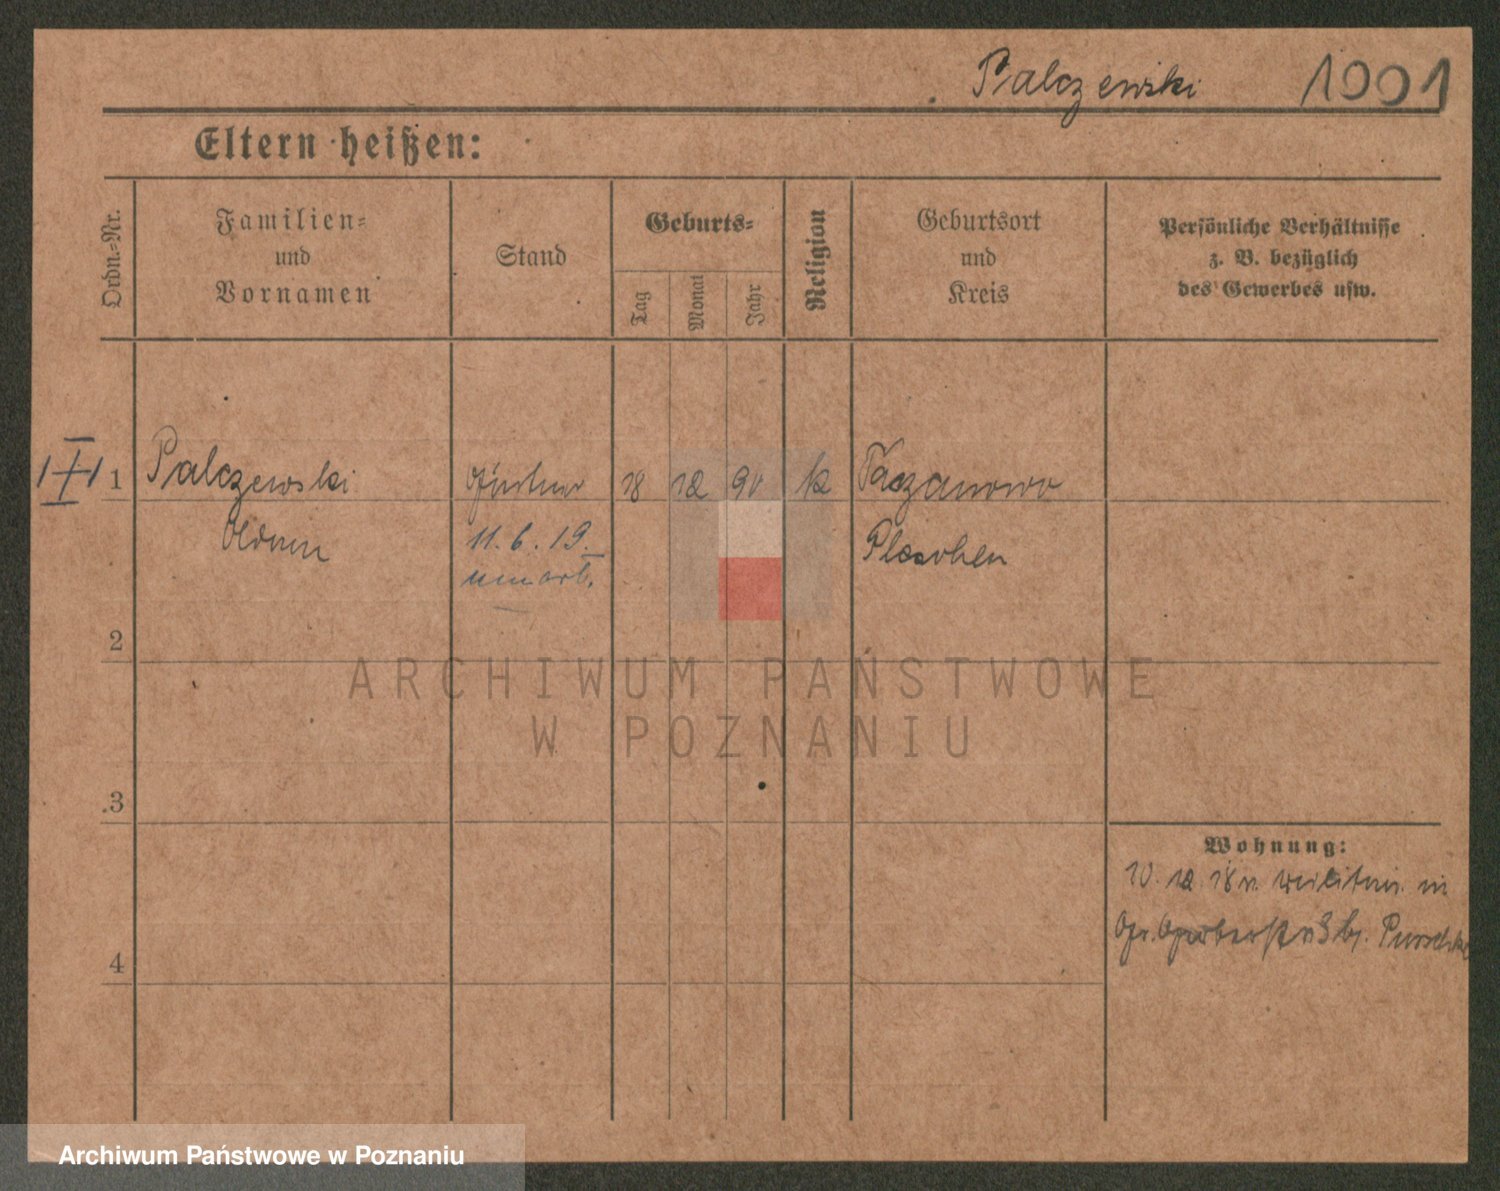 Palczewski 1901
Eltern heißen:
Ordn.-Nr.
Familien-
und
Vornamen
Stand
Geburts-
Tag
Monat
Jahr
Religion
Geburtsort
und
Kreis
Persönliche Verhältnisse
z. B. bezüglich
des Gewerbes usw.
1 Palczewski 18 12 90 k Taczanowo
11. 6. 19.
Pleschen
2
3
4
Wohnung:
10. 12. 18 v. in
ARCHIWUM PAŃSTWOWE
W POZNANIU
Archiwum Państwowe w Poznaniu